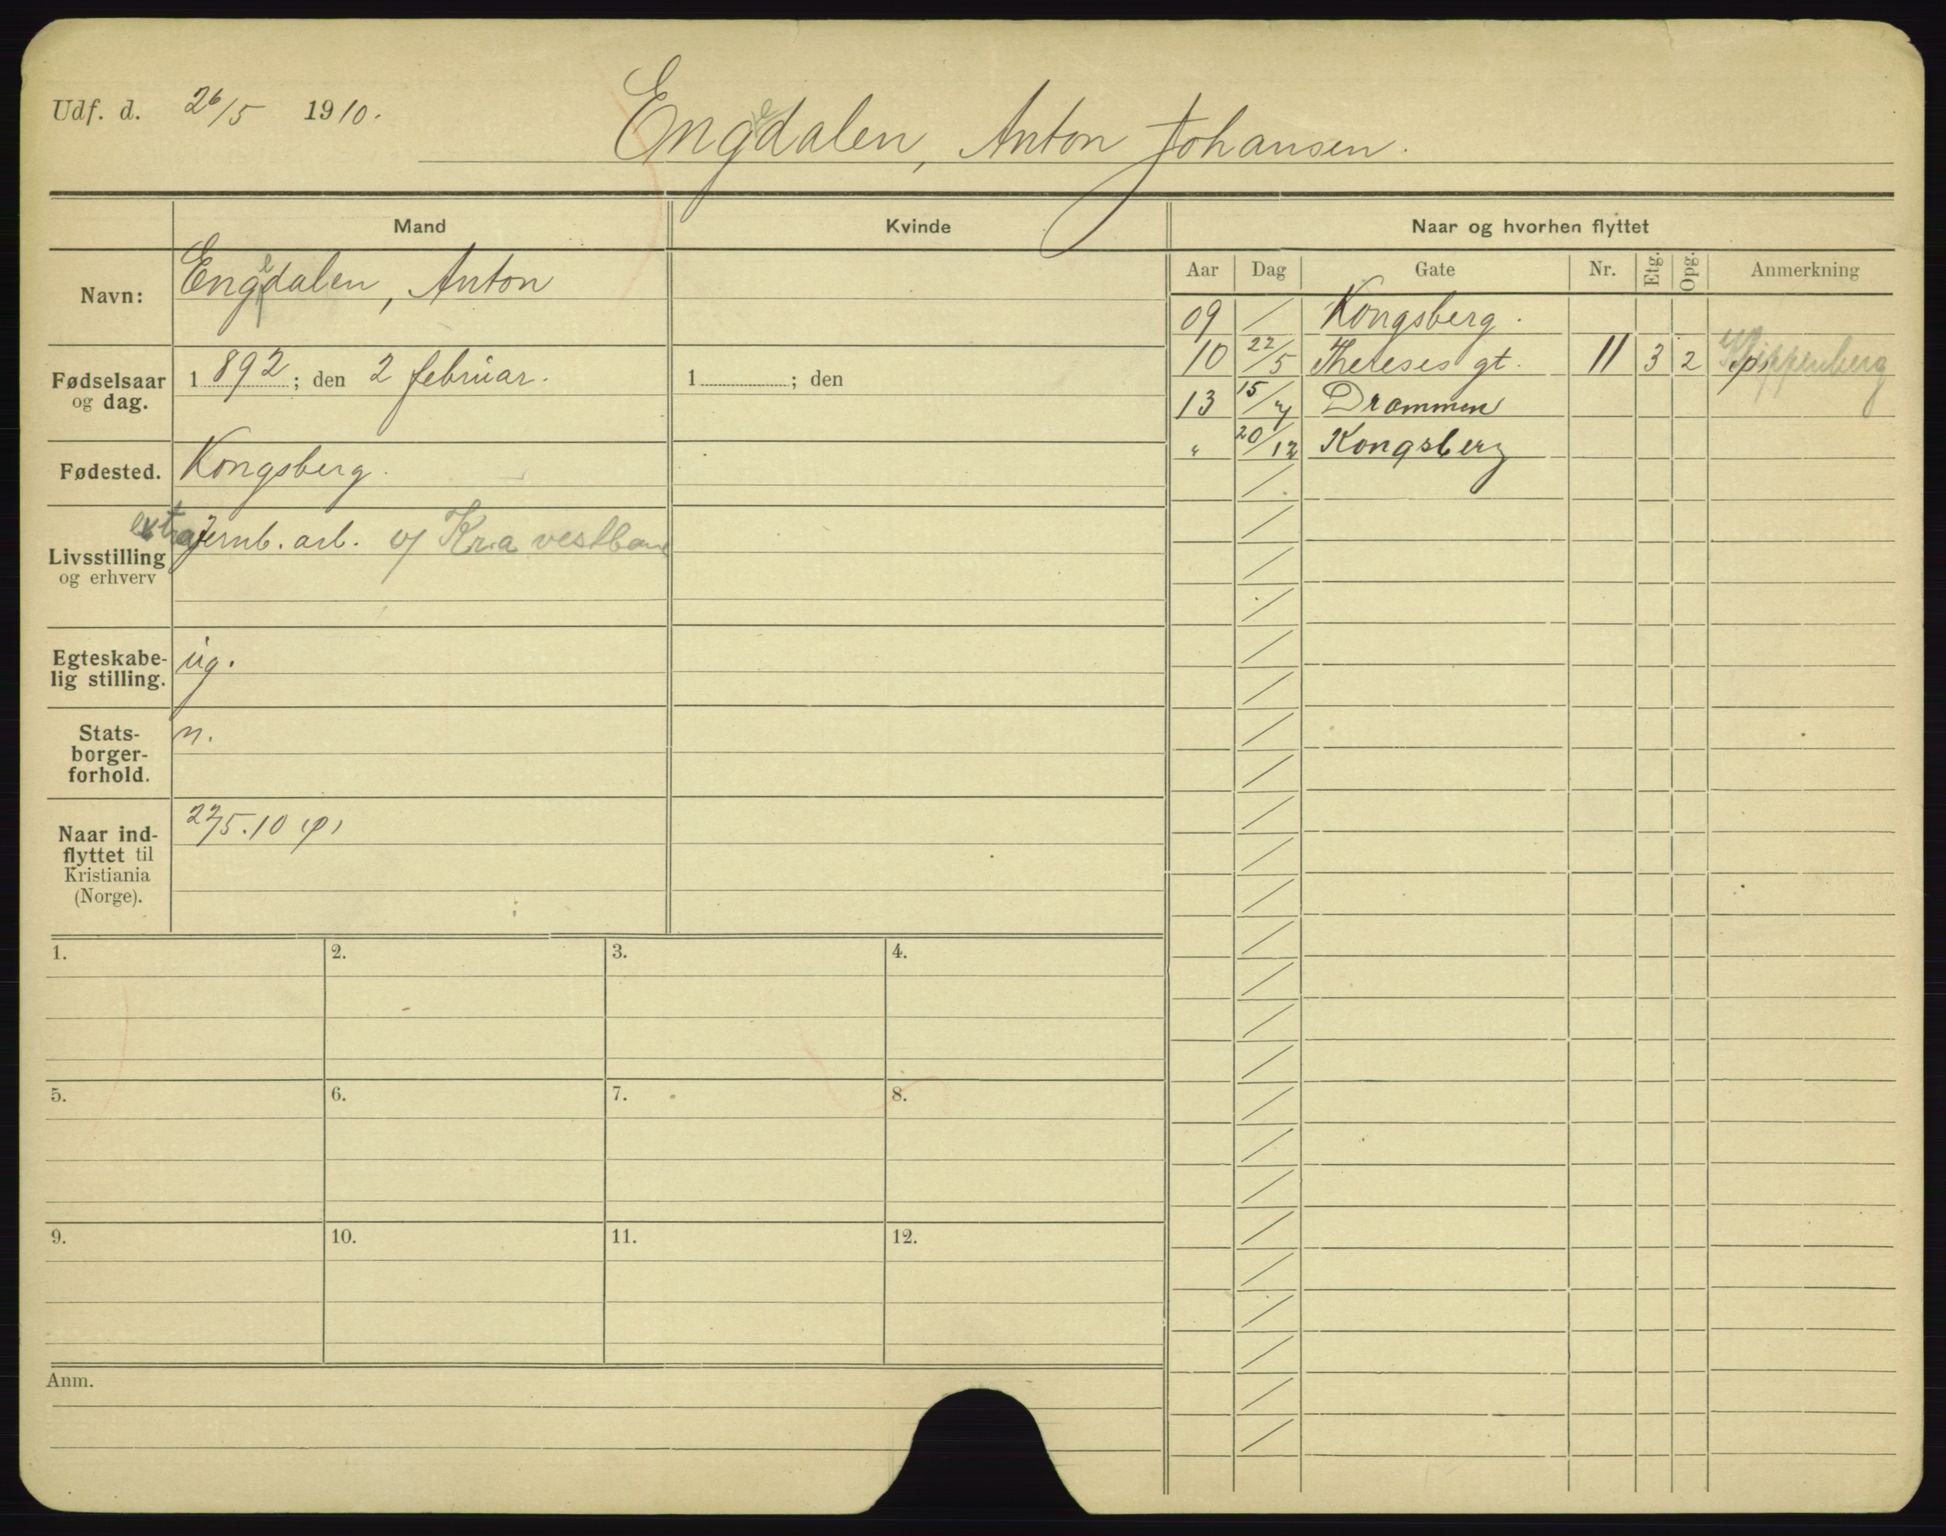 Udf. d. 26/5 1910.
Engedalen, Anton Johansen.
Mand
Kvinde
Naar og hvorhen flyttet
Navn:
Engedalen, Anton
Aar Dag Gate Nr. Etg. Opg. Anmerkning
09 / Kongsberg.
10 22/5 Thereses gt. 11 3 2
13 15/4 Drammen
" 20/12 Kongsberg
Fødselsaar og dag.
1892; den 2 februar.
1 ; den
Fødested.
Kongsberg.
Livsstilling og erhverv
extra jernb. arb. v/ Kr.a vestbane
Egteskabe-
lig stilling.
ug.
Stats-
borger-
forhold.
n.
Naar ind-
flyttet til
Kristiania
(Norge).
22/5.10
1. 2. 3. 4.
5. 6. 7. 8.
9. 10. 11. 12.
Anm.